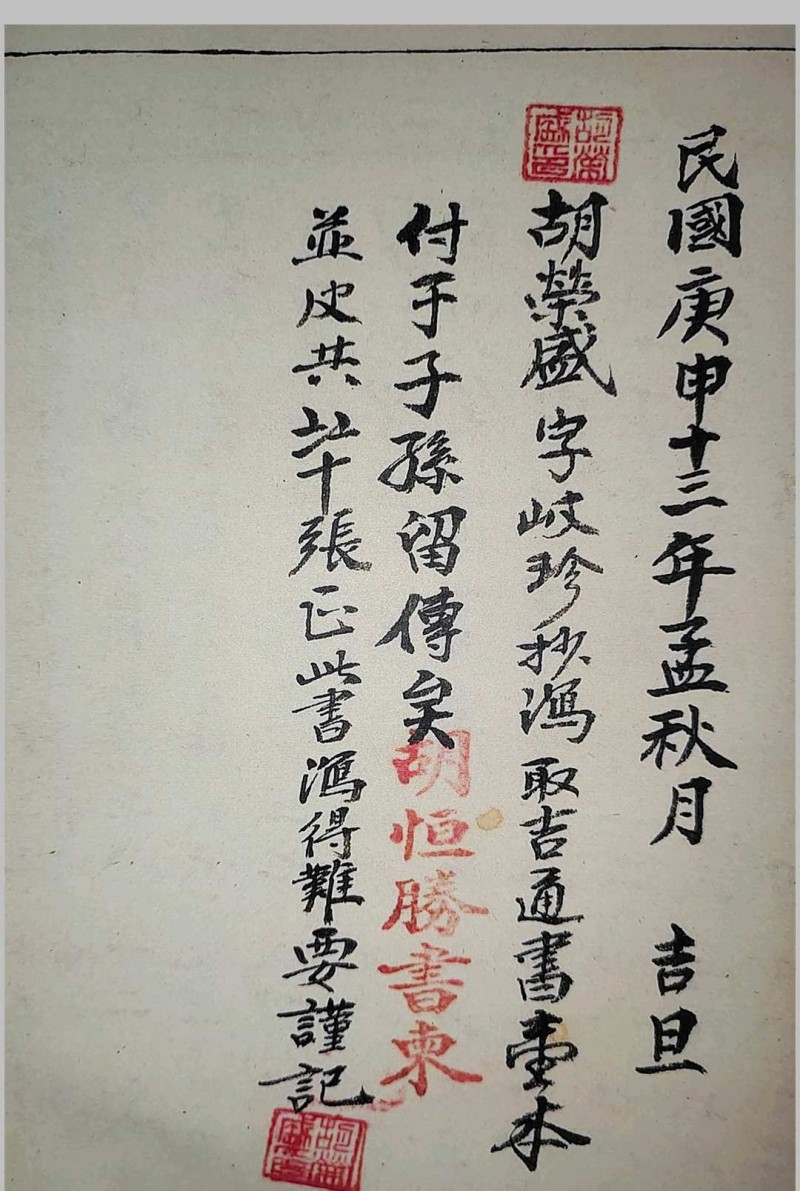 民國庚申十三年孟秋月 吉旦
胡榮盛印
胡榮盛字岐珍抄瀉取吉通書壹本
付于子孫留傳矣
胡恒勝書柬
並皮共六十張正此書瀉得難要謹記
胡榮盛印